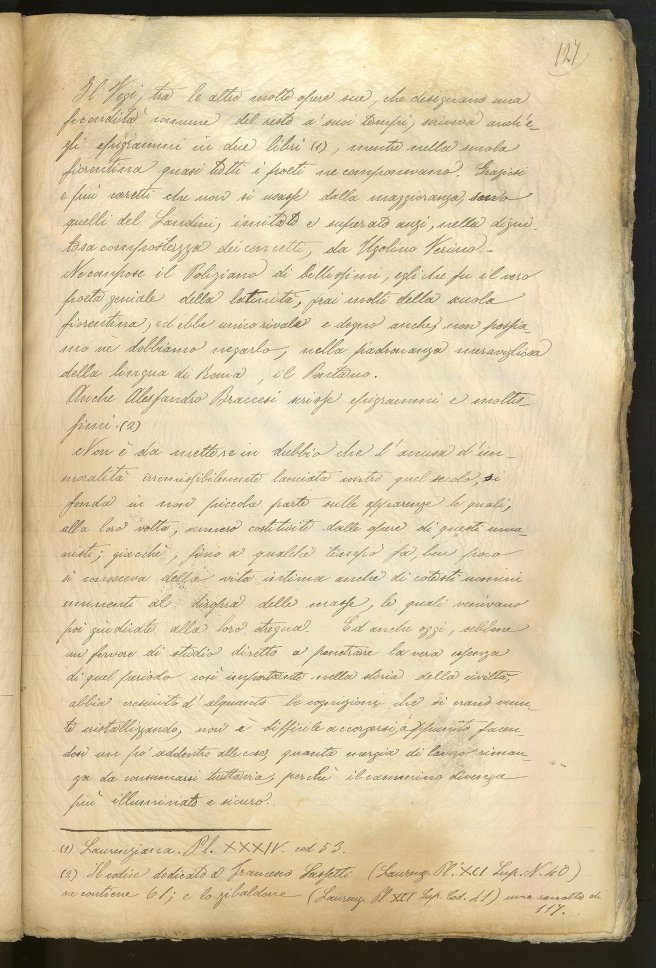 127
Il Vegi, tra le altre molte opere sue, che designano una
fecondità comune del resto a' suoi tempi, scriveva anch'e-
gli epigrammi in due libri (1), mentre nella scuola
fiorentina quasi tutti i poeti ne componevano. Graziosi
e più corretti che non si usasse dalla maggioranza sono
quelli del Landini, imitato e superato anzi, nella digni-
tosa compostezza dei concetti, da Ugolino Verino.-
Ne compose il Poliziano di bellissimi, egli che fu il vero
poeta geniale della latinità, frai molti della scuola
fiorentina, ed ebbe unico rivale e degno anche, non possia-
mo nè dobbiamo negarlo, nella padronanza meravigliosa
della lingua di Roma, il Pontano.
Anche Alessandro Braccesi scrisse epigrammi e moltis-
simi. (2)
Non è da mettere in dubbio che l'accusa d'im-
moralità irremissibilmente lanciata contro quel secolo, si
fonda in non piccola parte sulle apparenze le quali,
alla loro volta, vennero costituite dalle opere di questi uma-
nisti; giacchè, fino a qualche tempo fa, ben poco
si conosceva della vita intima anche di cotesti uomini
eminenti al disopra delle masse, le quali venivano
poi giudicate alla loro stregua. Ed anche oggi, sebbene
un fervore di studio diretto a penetrare la vera essenza
di quel periodo così importante nella storia della civiltà,
abbia cresciuto d'alquanto le cognizioni che si erano venu-
te cristallizzando, non è difficile accorgersi, appunto facen-
dosi un po' addentro alle cose, quanta energia di lavoro riman-
ga da consumarsi tuttavia, perchè il cammino divenga
più illuminato e sicuro.
(1) Laurenziana. Pl. XXXIV. cod 53.
(2) Il codice dedicato a Francesco Sassetti (Laurenz. Pl. XCI Sup. N. 40)
ne contiene 61; e lo zibaldone (Laurenz. Pl XCI Sup. Cod. 41) una raccolta di
117.